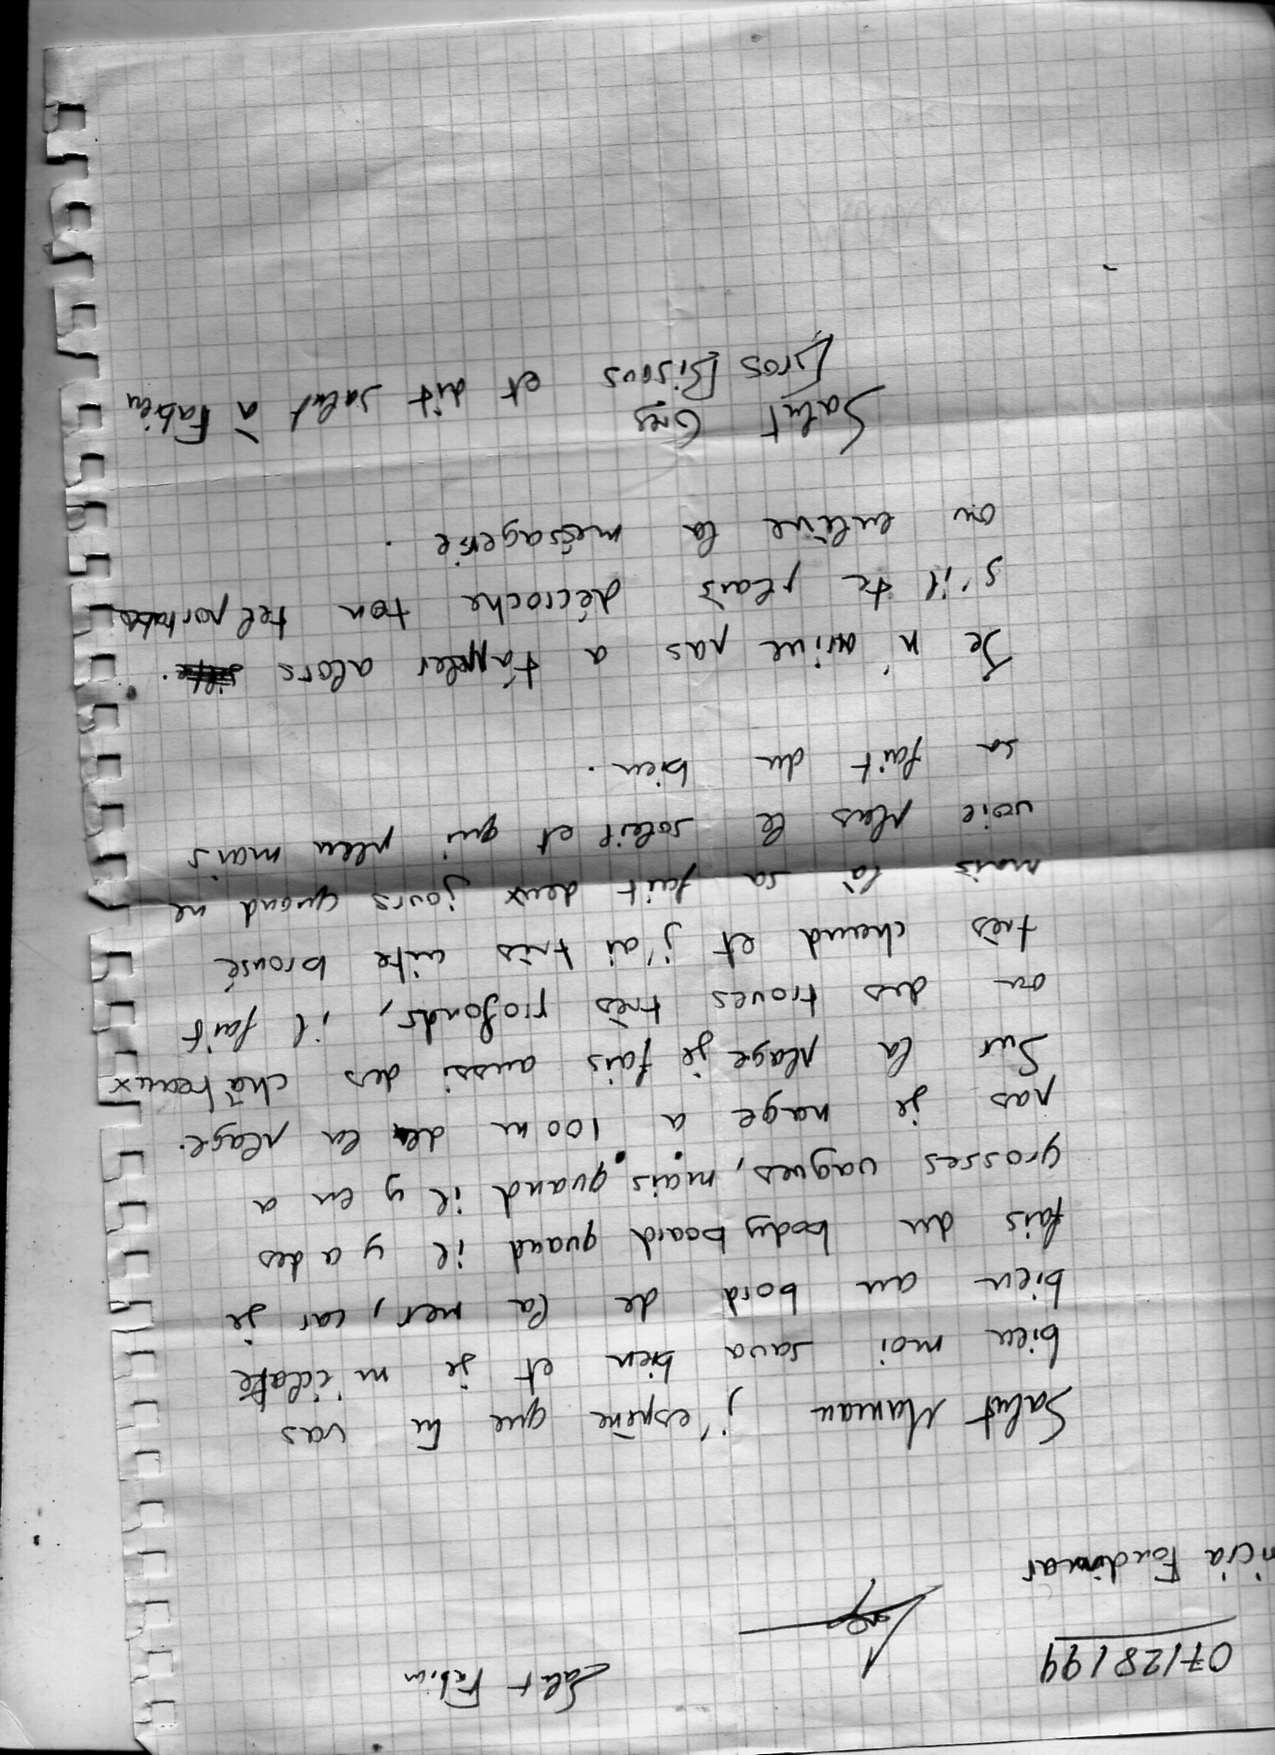 07/28/99
Salut Fabien
Salut Maman j'espère que tu vas
bien moi sava bien et je m'éclate
bien au bord de la mer, car je
fais du body board quand il y a des
grosses vagues, mais quand il y en a
pas je nage a 100 m de la plage.
Sur la plage je fais aussi des châteaux
ou des troues très profonds, il fait
très chaud et j'ai très vite bronsé
mais là sa fait deux jours quand ne
voie plas le soleil et qui pleu mais
sa fait du bien.
Je n'arive pas a t'appler alors
s'il te plais décroche ton tel portable
ou enlève la mésagerie.
Salut Greg
Gros Bisous et dit salut à Fabien